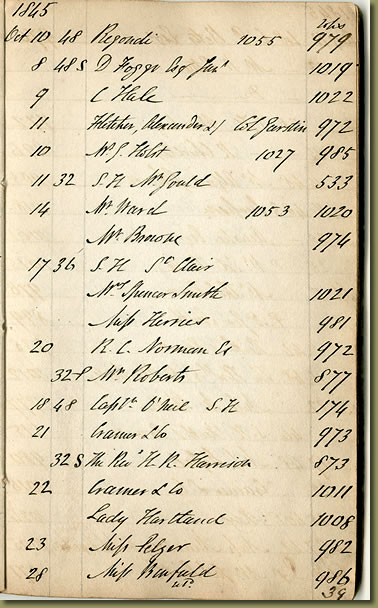 1845
Oct 10 48 Regondi 1055 979
8 48 S D Hogge Esq Junr 1019
9 C Hale 1022
11 Fletcher, Alexander & Col Gurdin 972
10 Mr J. Holst 1027 985
11 32 S.H Mr Gould 533
14 Mr Ward 1053 1020
Mr Browne 974
17 36 S.H St Clair
Mrs Spencer Smith 1021
Miss Herries 981
20 R.C. Norman Es 972
32 Mr Roberts 877
18 48 Captn O'Neil S.H 174
21 Cramer & Co 973
32 S The Revd H R. Harrison 873
22 Cramer & Co 1011
Lady Hartland 1008
23 Miss Pelzer 982
28 Miss Binfield 986
39